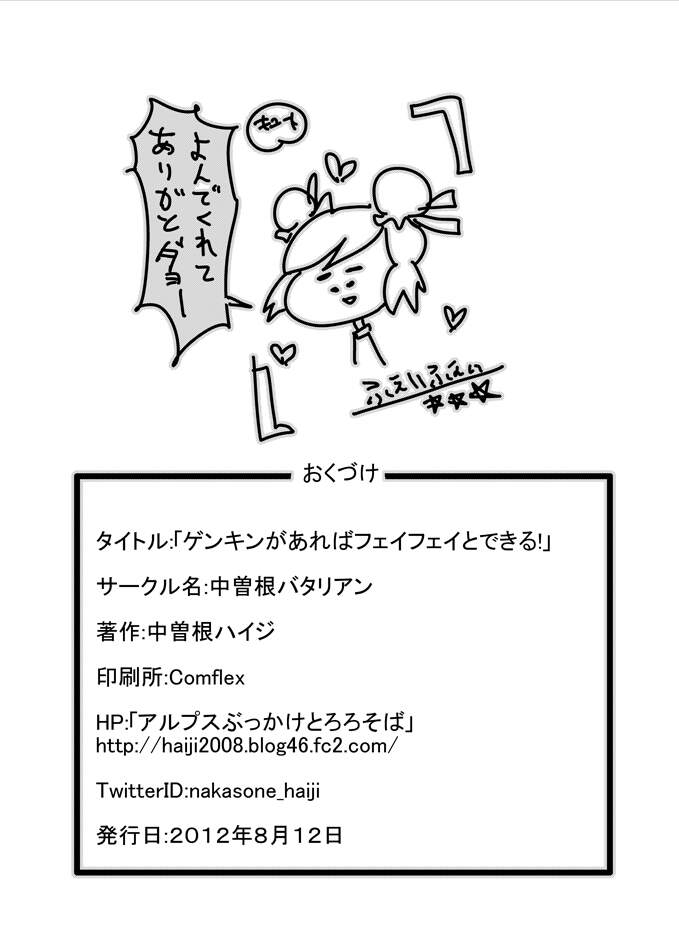 キュート
よんでくれて
ありがとダヨー
ふぇいふぇい
おくづけ
タイトル:「ゲンキンがあればフェイフェイとできる!」
サークル名:中曽根バタリアン
著作:中曽根ハイジ
印刷所:Comflex
HP:「アルプスぶっかけとろろそば」
http://haiji2008.blog46.fc2.com/
TwitterID:nakasone_haiji
発行日:2012年8月12日